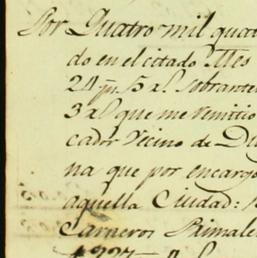 Por Quatro mil quat
do en el citado Mes
24 ps. 5 rl sobrante
3 al que me remitio
cador Vecino de Du
na que por encargo
aquella Ciudad:
Carneros Primale